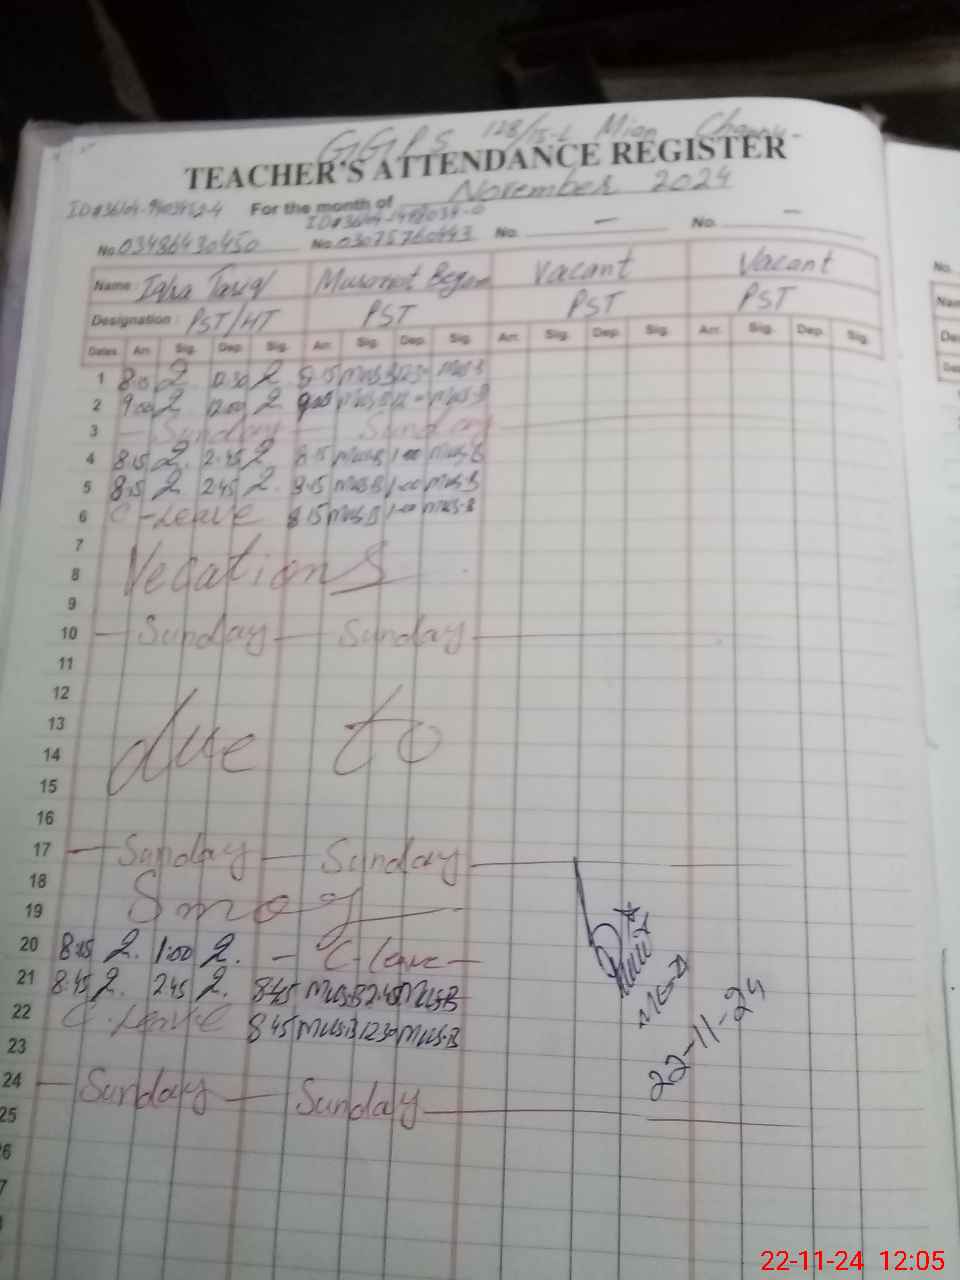 GGPS 128/15-L Mian Channu
TEACHER'S ATTENDANCE REGISTER
For the month of November 2024
No. 03486430450 No. 03075760443 No. — No. —
Name: Iqra Tariq Musarrat Begam Vacant Vacant
Designation: PST/HT PST PST PST
Dates Arr. Sig. Dep. Sig. Arr. Sig. Dep. Sig. Arr. Sig. Dep. Sig. Arr. Sig. Dep. Sig.
1 Mus.B Mus.B
2 9:00 12:00 9:05 Mus.B Mus.B
3 — Sunday — Sunday
4 8:15 2:45 8:15 Mus.B 1:00 Mus.B
5 8:15 2:45 8:15 Mus.B 1:00 Mus.B
6 C-Leave 8:15 Mus.B 1:00 Mus.B
7
8 Vecations
9
10 — Sunday — Sunday —
11
12
13
14 due to
15
16
17 — Sunday — Sunday —
18
19 Smog
20 8:45 1:00 — C-leave —
21 8:45 2:45 8:45 Mus.B 2:45 Mus.B
22 C-Leave 8:45 Mus.B 12:30 Mus.B
23
24 — Sunday — Sunday —
25
22-11-24
22-11-24 12:05